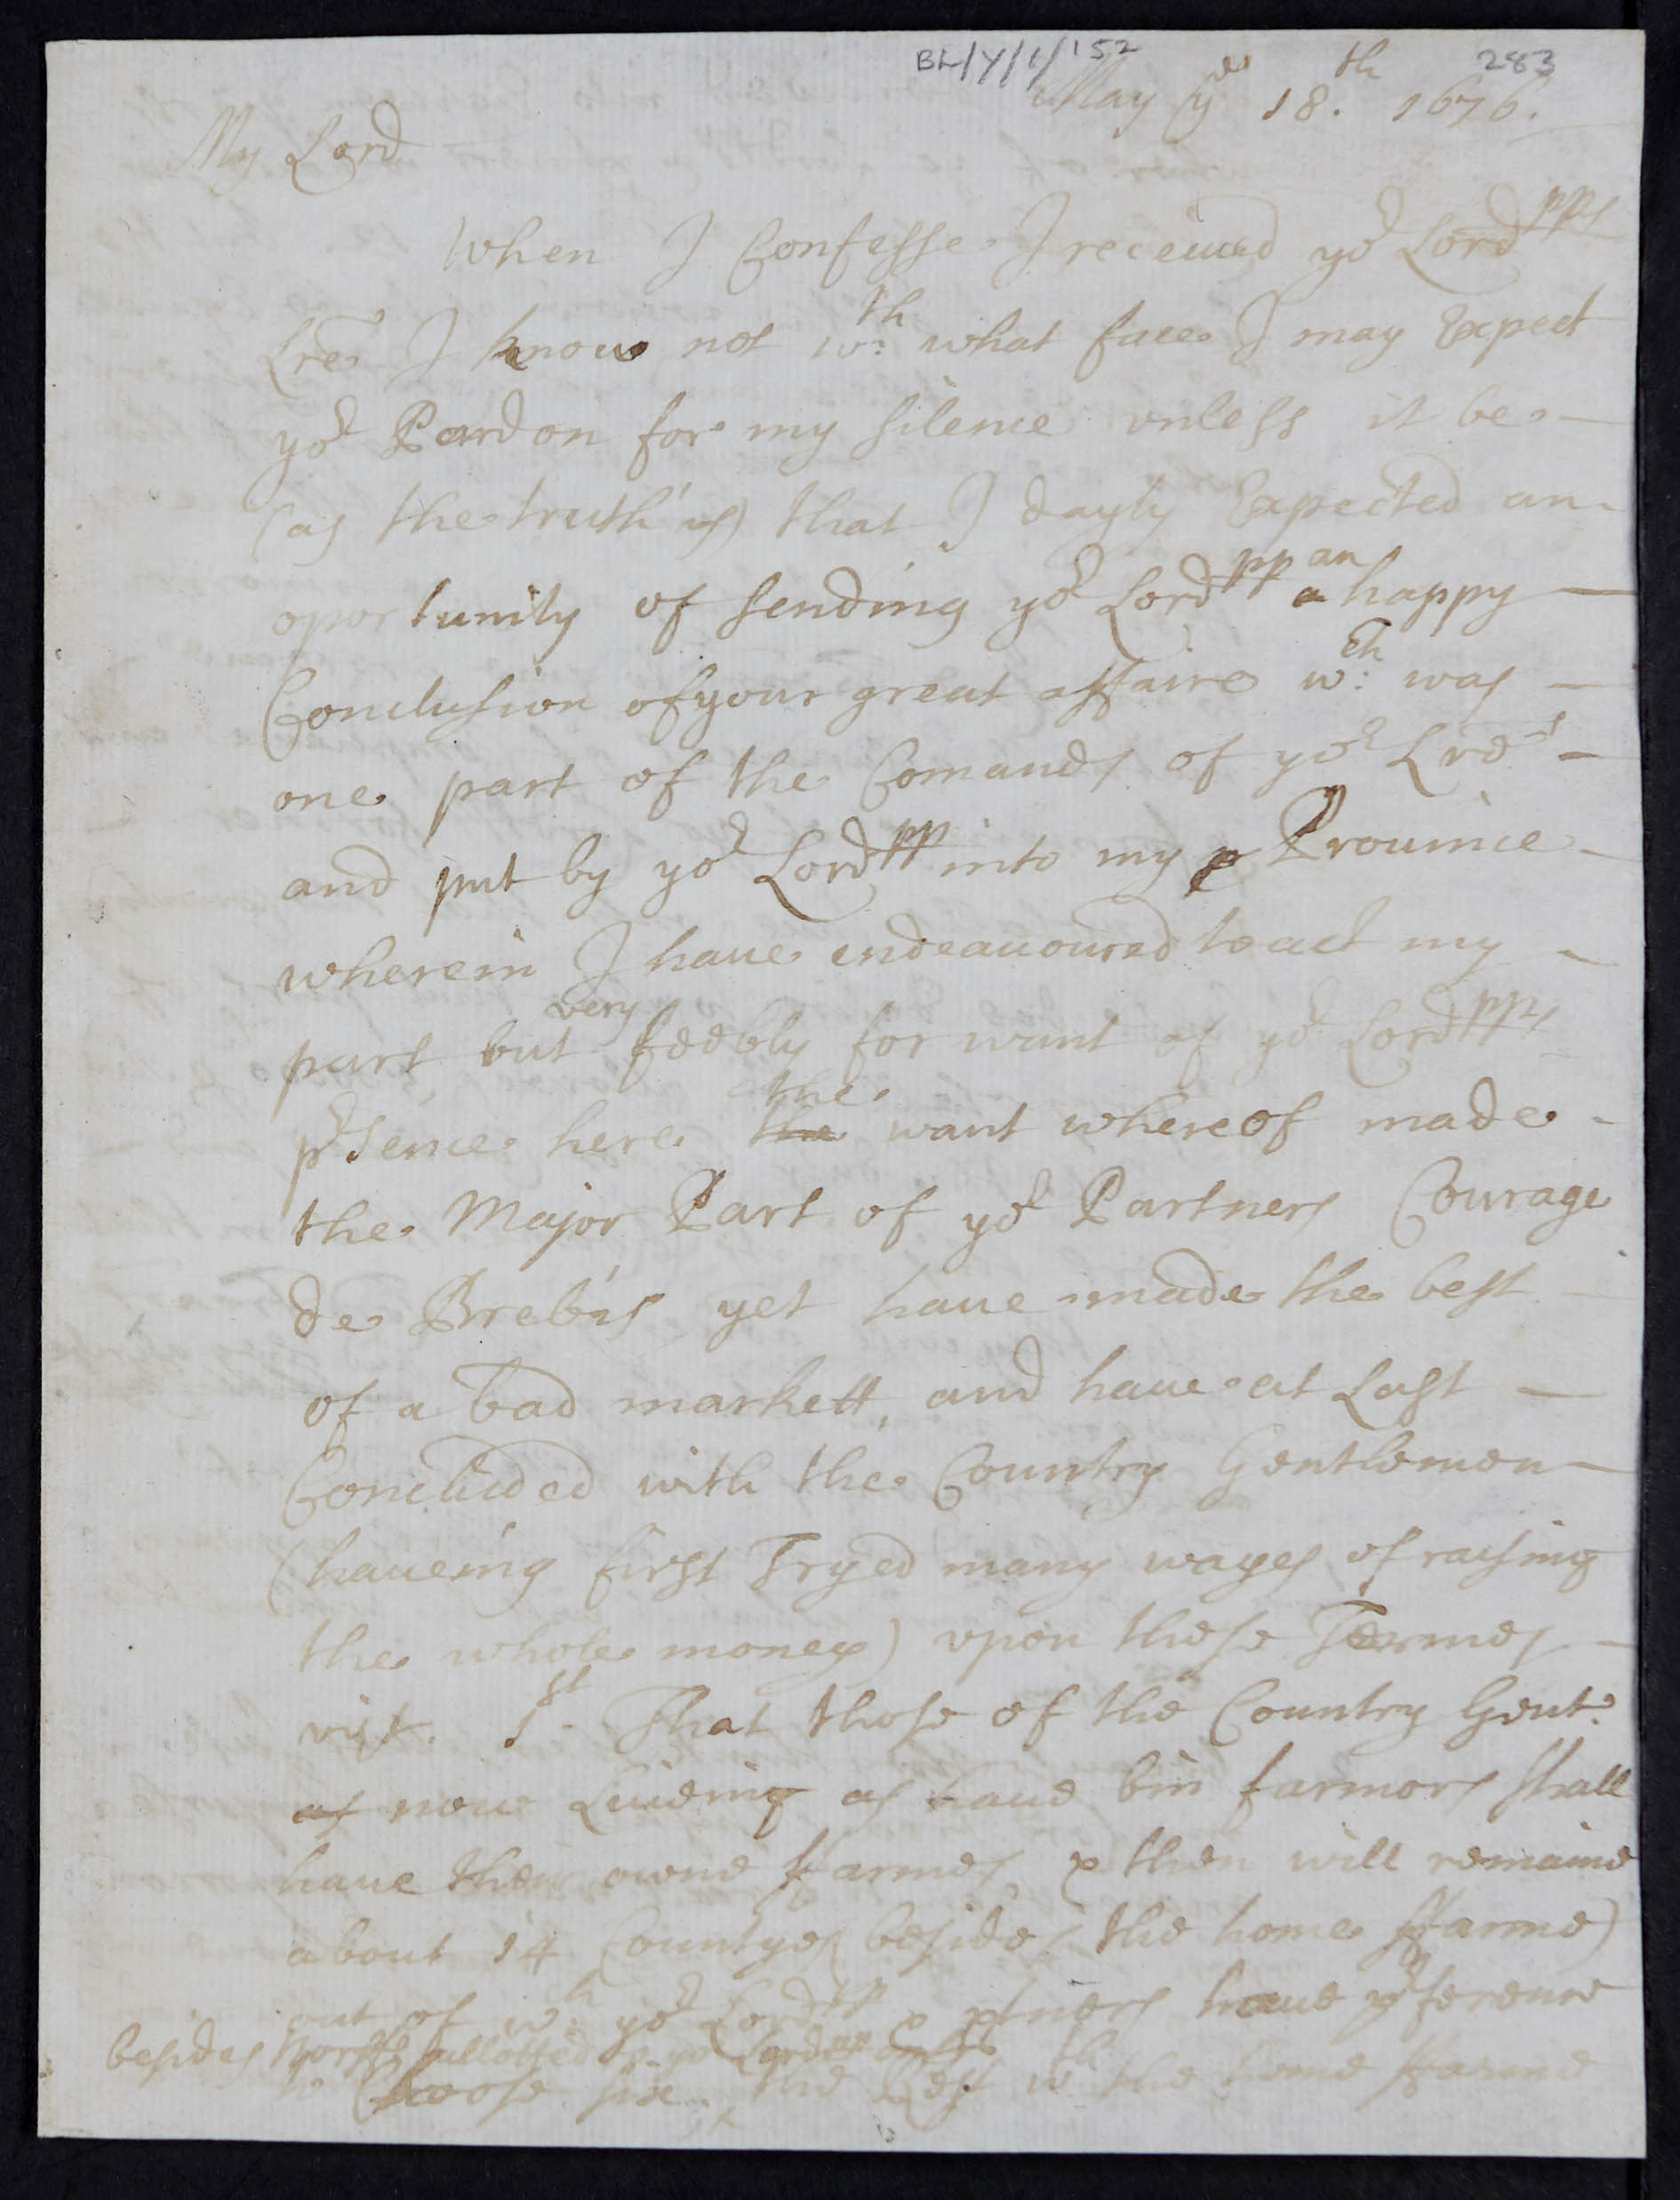 BL/Y/1/152
283
May ye 18.th 1676.
My Lord
When I Confesse I receiued yor Lordpps
Lre I know not wth what face I may Expect
yor Pardon for my silence vnless it be
(as the truth is) that I dayly Expected an
oportunity of sending yor Lordpp an a happy
Conclusion of your great affaire wch was
one part of the Comands of yor Lrds
and put by yor Lordpp into my p Prouince
wherein I haue endeauoured to act my
part but very feebly for want of yor Lordpps
prsence here the the want whereof made
the Major Part of yor Partners Courage
de Brebis yet haue made the best
of a bad markett, and haue at Last
Concluded with the Country Gentlemen
(haueing first Tryed many wayes of raising
the whole money) vpon these Termes
vizt. 1st. That those of the Country Gent:
as now Liueing as haue bin farmors shall
haue their owne ffarmes & then will remaine
about 14 Countyes (besides the home ffarme)
out of wch yor Lordpp & ptners haue prference
besides Norff: allotted to yor Lordpp
to Choose six, the Rest wth the home ffarme